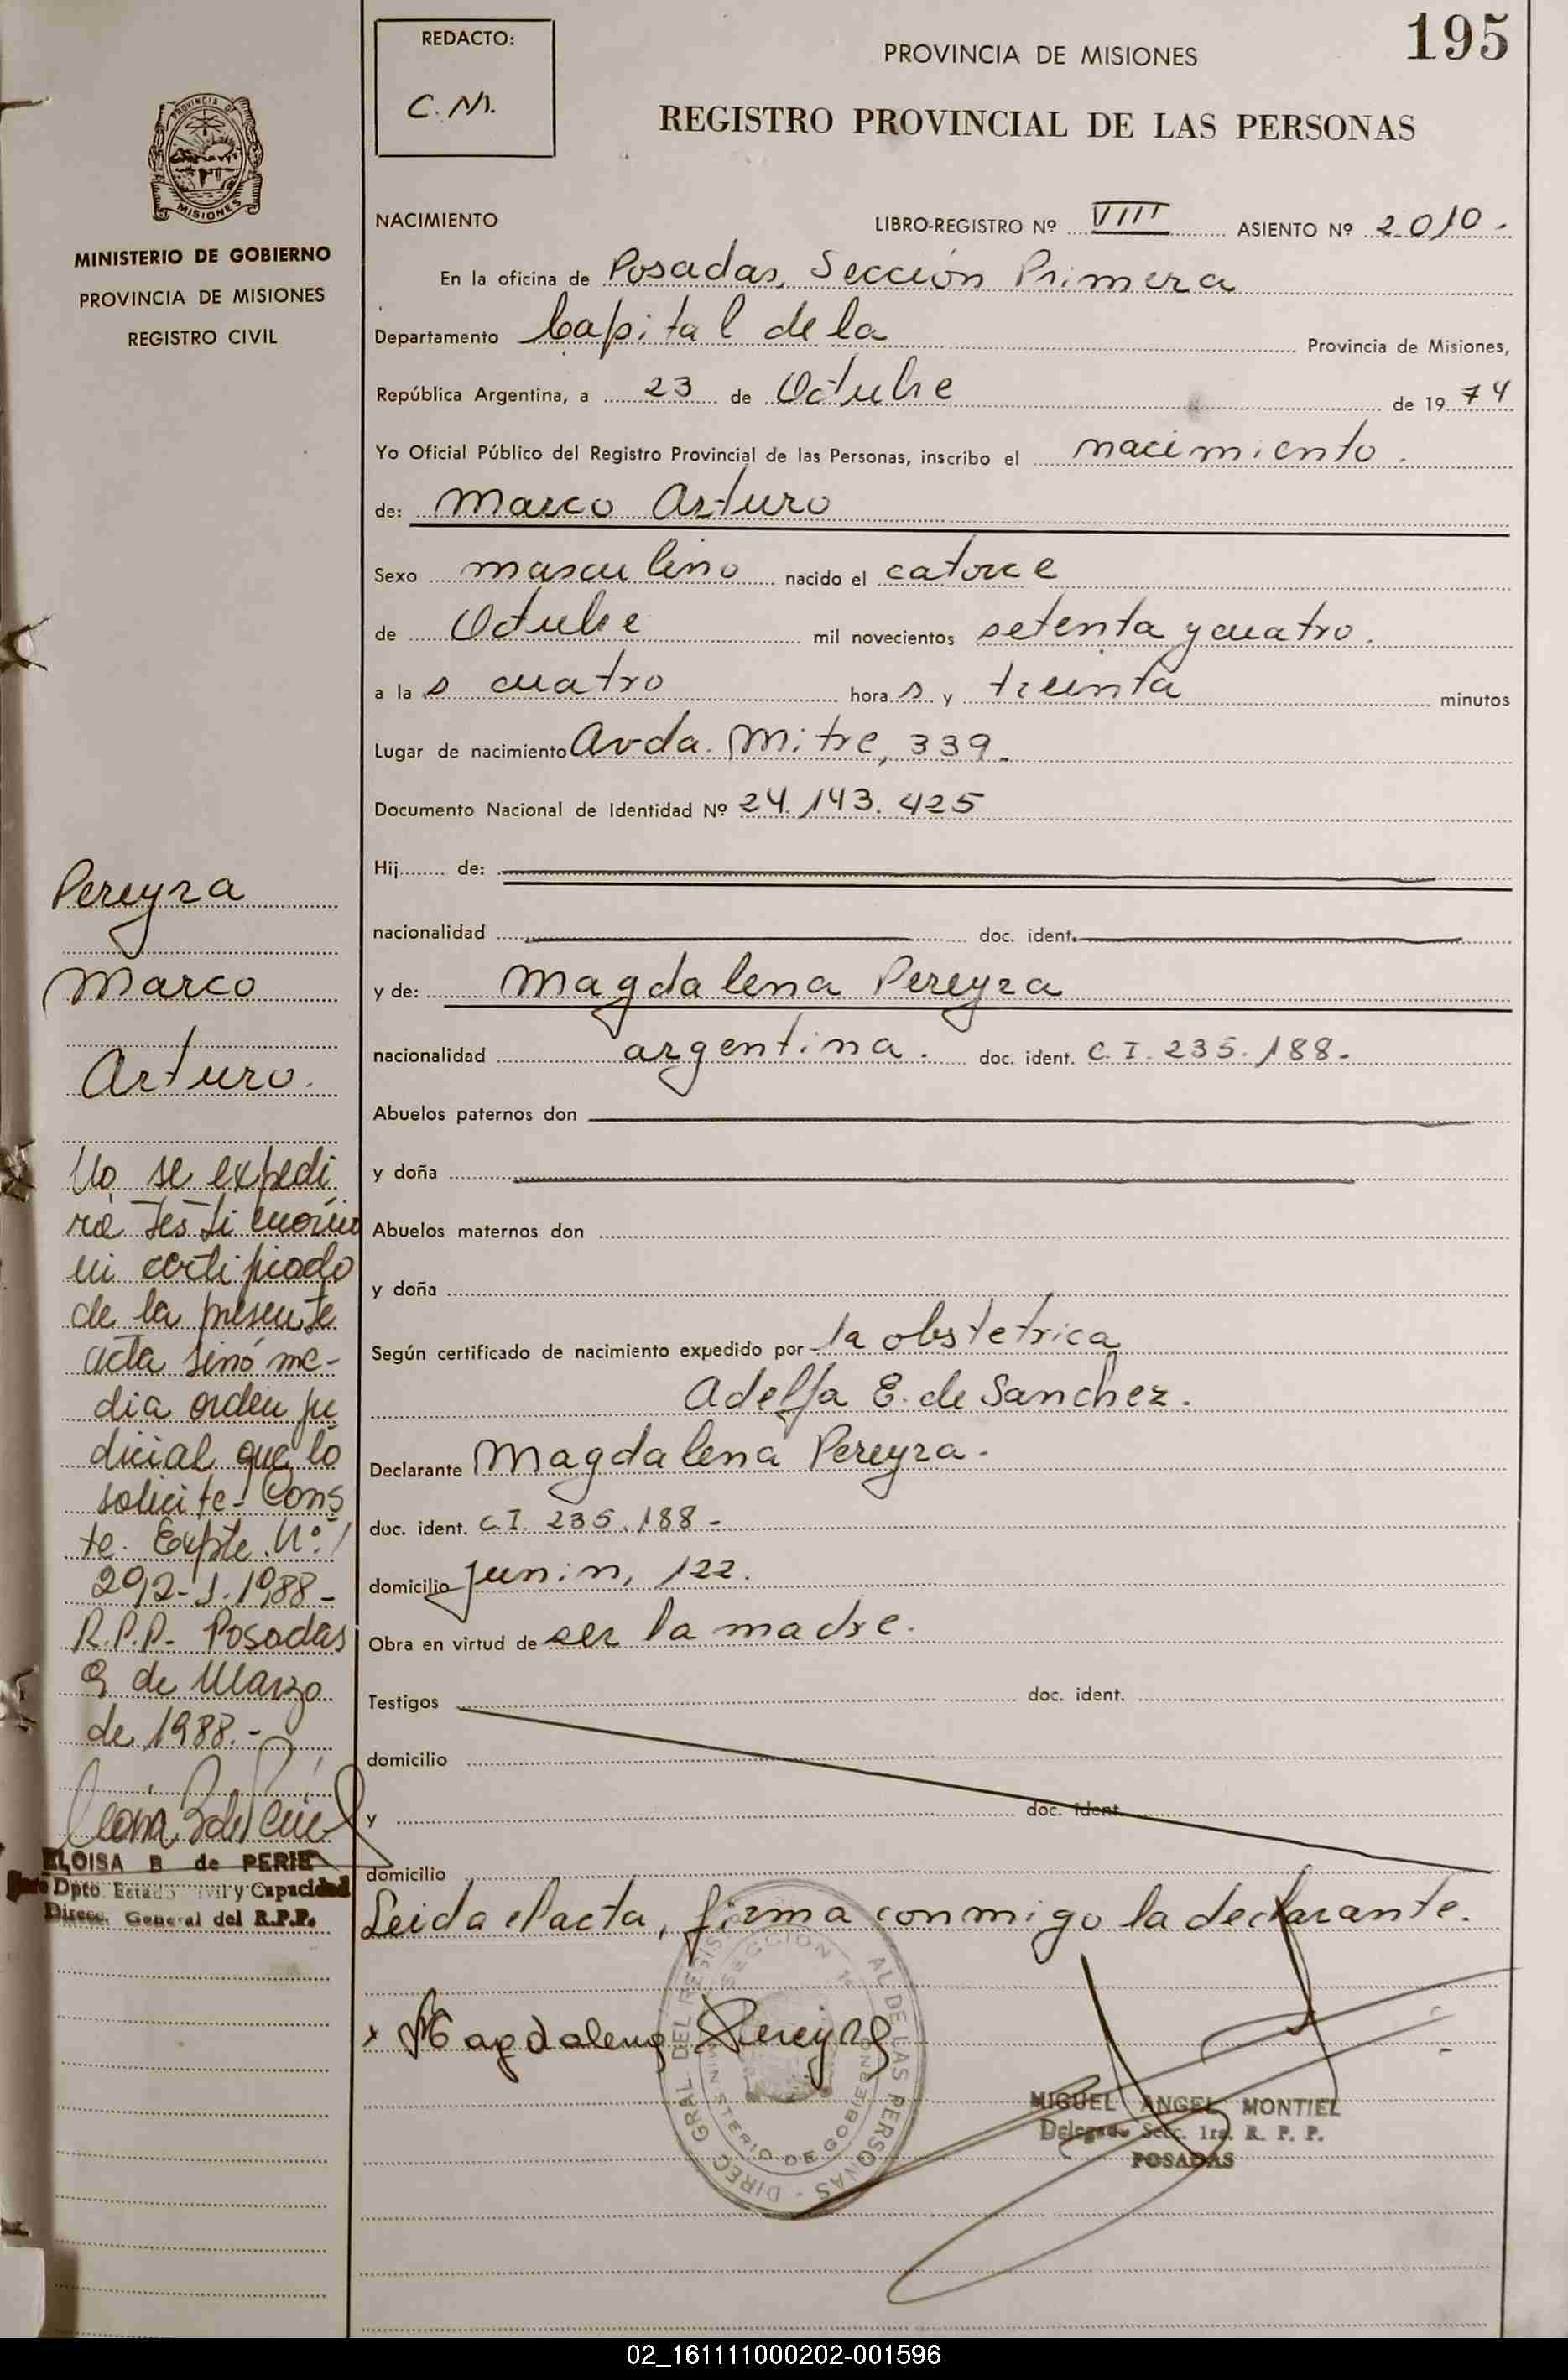 REDACTO:
C. M.
PROVINCIA DE MISIONES
195
REGISTRO PROVINCIAL DE LAS PERSONAS
PROVINCIA DE
MISIONES
MINISTERIO DE GOBIERNO
PROVINCIA DE MISIONES
REGISTRO CIVIL
NACIMIENTO LIBRO-REGISTRO Nº VIII ASIENTO Nº 2010-
En la oficina de Posadas, Sección Primera
Departamento Capital de la Provincia de Misiones,
República Argentina, a 23 de Octubre de 1974
Yo Oficial Público del Registro Provincial de las Personas, inscribo el nacimiento.
de: Marco Arturo
Sexo masculino nacido el catorce
de Octubre mil novecientos setenta y cuatro.
a las cuatro horas y treinta minutos
Lugar de nacimiento Avda. Mitre, 339.
Documento Nacional de Identidad Nº 24.143.425
Hij de:
nacionalidad doc. ident.
y de: Magdalena Pereyra
nacionalidad argentina. doc. ident. C.I. 235.188-
Abuelos paternos don
y doña
Abuelos maternos don
y doña
Según certificado de nacimiento expedido por la obstetrica
Adelfa E. de Sanchez.
Declarante Magdalena Pereyra-
doc. ident. C.I. 235.188-
domicilio Junin, 122.
Obra en virtud de ser la madre.
Testigos doc. ident.
domicilio
y doc. ident.
domicilio
Leida el acta, firma conmigo la declarante.
x Magdalena Pereyra
DIREC. GRAL DEL REGIS AL DE LAS PERSONAS -
SECCION 1ª
MINISTERIO DE GOBIERNO
MIGUEL ANGEL MONTIEL
Delegado Secc. 1ra. R. P. P.
POSADAS
Pereyra
Marco
Arturo.
No se expedi
rá testimonio
ni certificado
de la presente
acta sinó me-
dia orden ju
dicial que lo
solicite- Cons
te. Expte. Nº
292-J-1988-
R.P.P.- Posadas
9 de Marzo
de 1988.-
ELOISA B de PERIE
Dpto. Estado Civil y Capacidad
Direcc. General del R.P.P.
02_161111000202-001596